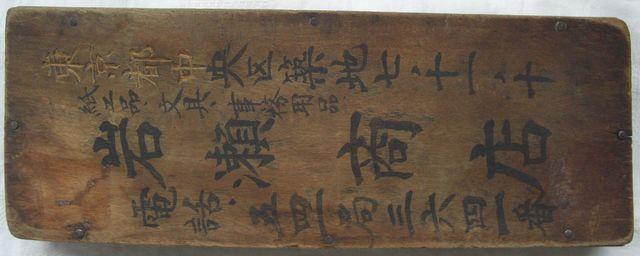 東京都中央区築地七ノ十一ノ十
紙工品 文具 事務用品
岩瀬商店
電話 五四一局三六四一番